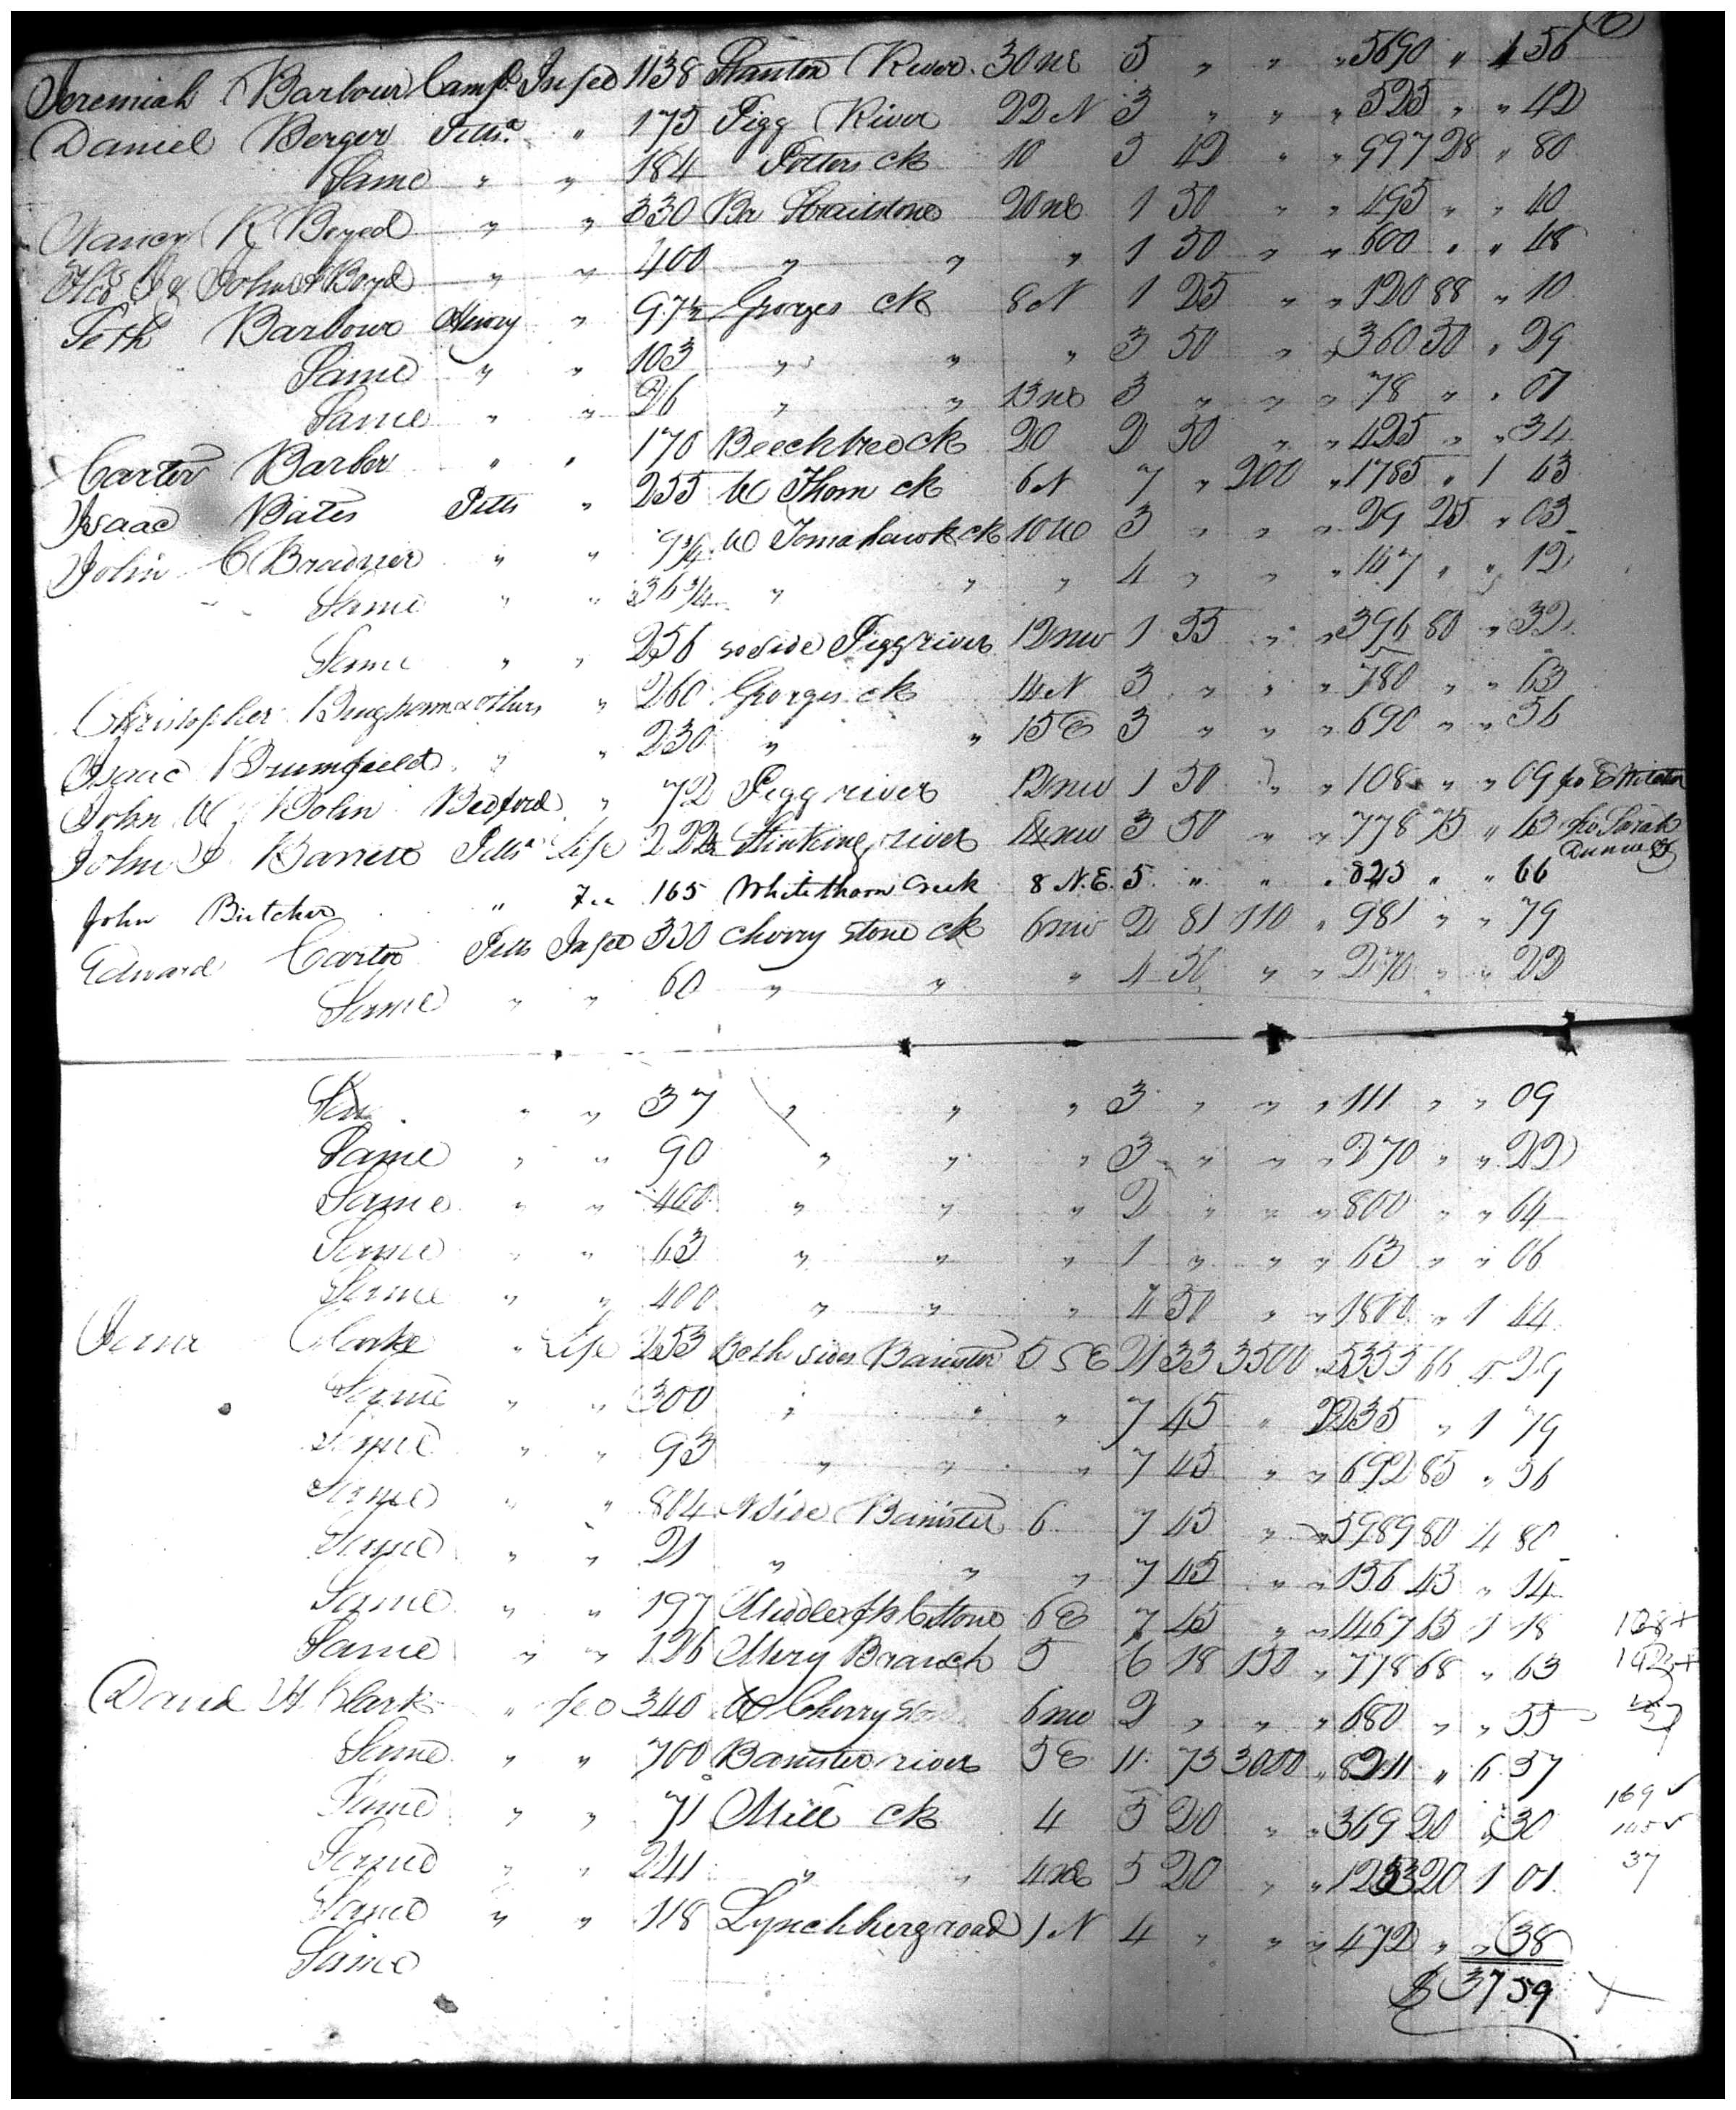 Jeremiah Barbour Camp. In fee 1138 Stanton River 30 NE 5 " " " 5690 " 4 56
Daniel Berger Pitts. " 175 Pigg River 22 N 3 " " " 525 " " 42
Same " " 184 Potters ck 10 5 42 " " 997 28 " 80
Nancy R Boyed " " 330 Br Straitstone 20 NE 1 50 " " 495 " " 40
John A Boyd " " 400 " " " 1 50 " " 600 " " 48
Seth Barbour Henry " 97½ Georges ck 8 N 1 25 " " 120 88 " 10
Same " " 103 " " " 3 50 " " 360 50 " 29
Same " " 26 " " 13 NE 3 " " " 78 " " 07
Carter Barber " " 170 Beechtree ck 20 2 50 " " 425 " " 34
Isaac Bates Pitts " 255 W Thorn ck 6 N 7 " 200 " 1785 " 1 43
John C Bradner " " 9¾ W Tomahawk ck 10 W 3 " " " 29 25 " 03
Same " " 36¾ " " " 4 " " " 147 " " 12
Same " " 256 so side Pigg river 12 NW 1 55 " " 396 80 " 32
Christopher & others " 260 Georges ck 14 N 3 " " " 780 " " 63
Isaac Brumfield " " 230 " " 15 E 3 " " " 690 " " 56
John W Bolin Bedford " 72 Pigg river 12 NW 1 50 " " 108 " " 09 fro
John Barrett Pitts Life 222½ Stinking river 14 NW 3 50 " " 778 75 " 63 fro Sarah
John Butcher " Fee 165 Whitethorn Creek 8 N.E. 5 " " " 825 " " 66
Edward Carter Pitts In fee 350 Cherry Stone ck 6 NW 2 81 110 " 981 " " 79
Same " " 60 " " " 4 50 " " 270 " " 22
" " 37 " " " 3 " " " 111 " " 09
Same " " 90 " " " 3 " " " 270 " " 22
Same " " 400 " " " 2 " " " 800 " " 64
Same " " 63 " " " 1 " " " 63 " " 06
Same " " 400 " " " 4 50 " " 1800 " 1 44
Clarke " Life 253 Both sides Banister 5 SE 21 33 3500 " 5353 66 4 29
Same " " 300 " " " 7 45 " 2235 " 1 79
Same " " 93 " " " 7 45 " " 692 85 " 56
Same " " 804 N side Banister 6 7 45 " " 5989 80 4 80
Same " " 21 " " " 7 45 " " 156 43 " 14
Same " " 197 Middle fk C stone 6 E 7 45 " " 1467 65 1 18
Same " " 126 Mery Branch 5 6 18 150 " 778 68 " 63
David H Clark " fee 340 W Cherry stone 6 NW 2 " " " 680 " " 55
Same " " 700 Banister river 5 E 11 73 3000 " 8211 " 6 57
Same " " 71 Mill ck 4 5 20 " " 369 20 " 30
Same " " 241 " " 4 NE 5 20 " " 1253 20 1 01
Same " " 118 Lynchburg road 1 N 4 " " " 472 " " 38
Same
$37 59